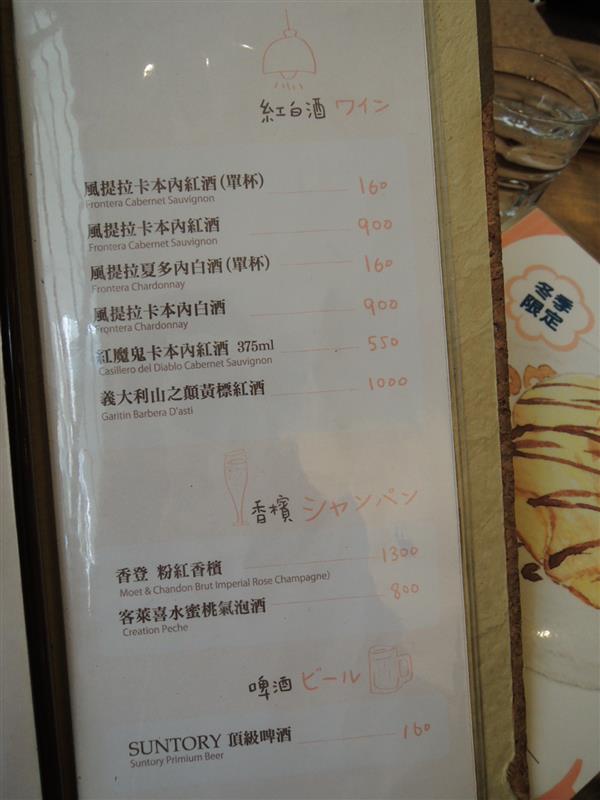 紅白酒 ワイン
風提拉卡本內紅酒(單杯) 160
Frontera Cabernet Sauvignon
風提拉卡本內紅酒 900
Frontera Cabernet Sauvignon
風提拉夏多內白酒(單杯) 160
Frontera Chardonnay
風提拉卡本內白酒 900
Frontera Chardonnay
紅魔鬼卡本內紅酒 375ml 550
Casillero del Diablo Cabernet Sauvignon
義大利山之顛黃標紅酒 1000
Garitin Barbera D'asti
香檳 シャンパン
香登 粉紅香檳 1300
Moet & Chandon Brut Imperial Rose Champagne)
客萊喜水蜜桃氣泡酒 800
Creation Peche
啤酒 ビール
SUNTORY 頂級啤酒 160
Suntory Primium Beer
冬季
限定